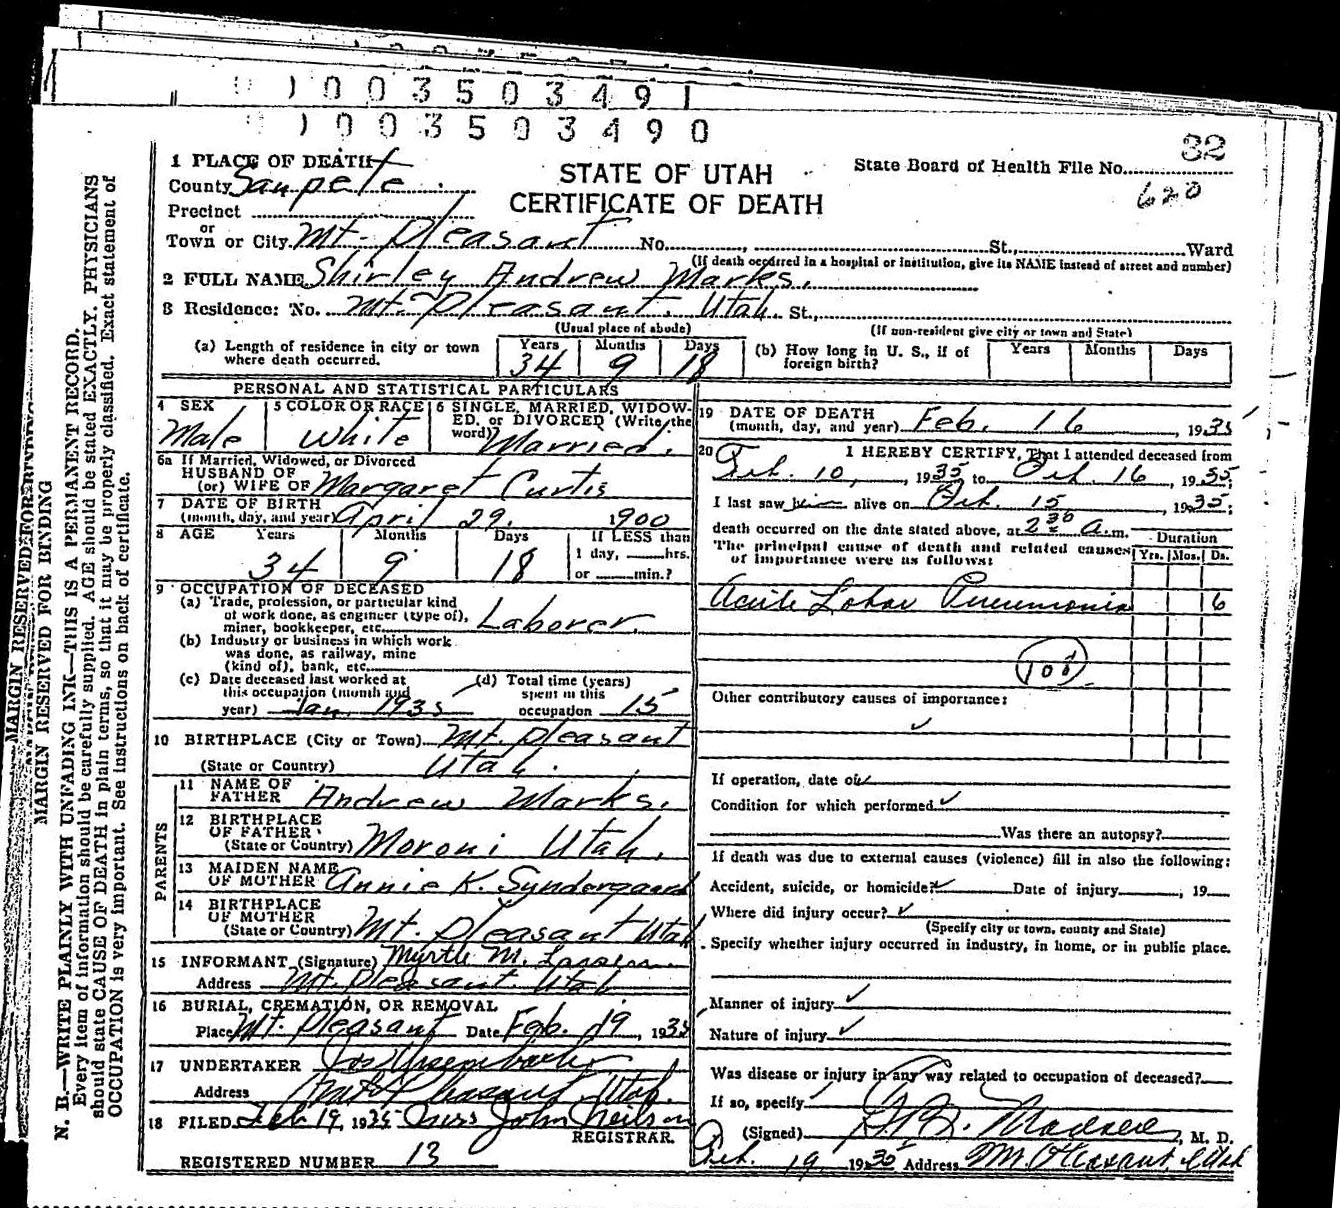 0 0 3 5 0 3 4 9 1
0 0 3 5 0 3 4 9 0
MARGIN RESERVED FOR BINDING
MARGIN RESERVED FOR BINDING
N. B.—WRITE PLAINLY WITH UNFADING INK—THIS IS A PERMANENT RECORD.
Every item of information should be carefully supplied. AGE should be stated EXACTLY. PHYSICIANS
should state CAUSE OF DEATH in plain terms, so that it may be properly classified. Exact statement of
OCCUPATION is very important. See instructions on back of certificate.
32
1 PLACE OF DEATH
STATE OF UTAH
State Board of Health File No.
County Sanpete
620
CERTIFICATE OF DEATH
Precinct
or
Town or City Mt. Pleasant No. , St., Ward
(If death occurred in a hospital or institution, give its NAME instead of street and number)
2 FULL NAME Shirley Andrew Marks.
3 Residence: No. Mt. Pleasant, Utah. St.,
(Usual place of abode) (If non-resident give city or town and State)
(a) Length of residence in city or town where death occurred. Years 34 Months 9 Days 18
(b) How long in U. S., if of foreign birth? Years Months Days
PERSONAL AND STATISTICAL PARTICULARS
4 SEX Male
5 COLOR OR RACE White
6 SINGLE, MARRIED, WIDOW-
ED, or DIVORCED (Write the
word) Married.
6a If Married, Widowed, or Divorced
HUSBAND OF
(or) WIFE OF Margaret Curtis
7 DATE OF BIRTH
(month, day, and year) April 29. 1900
8 AGE Years 34 Months 9 Days 18
If LESS than
1 day, hrs.
or min.?
9 OCCUPATION OF DECEASED
(a) Trade, profession, or particular kind
of work done, as engineer (type of),
miner, bookkeeper, etc. Laborer.
(b) Industry or business in which work
was done, as railway, mine
(kind of), bank, etc.
(c) Date deceased last worked at
this occupation (month and
year) Jan. 1935
(d) Total time (years)
spent in this
occupation 15
10 BIRTHPLACE (City or Town) Mt. Pleasant
(State or Country) Utah.
PARENTS
11 NAME OF
FATHER Andrew Marks.
12 BIRTHPLACE
OF FATHER
(State or Country) Moroni Utah.
13 MAIDEN NAME
OF MOTHER Annie K. Syndergaard
14 BIRTHPLACE
OF MOTHER
(State or Country) Mt. Pleasant Utah
15 INFORMANT (Signature) Myrtle M. Larsen.
Address Mt. Pleasant. Utah
16 BURIAL, CREMATION, OR REMOVAL
Place Mt. Pleasant Date Feb. 19, 1935
17 UNDERTAKER
Address Mt Pleasant, Utah.
18 FILED Feb 19, 1935 John Neilson
REGISTRAR.
REGISTERED NUMBER 13
19 DATE OF DEATH
(month, day, and year) Feb. 16, 1935
20 I HEREBY CERTIFY, That I attended deceased from
Feb. 10, 1935 to Feb. 16, 1935;
I last saw him alive on Feb. 15, 1935;
death occurred on the date stated above, at 2 30 a.m.
The principal cause of death and related causes
of importance were as follows:
Duration
Yrs. Mos. Ds.
Acute Lobar Pneumonia 6
108
Other contributory causes of importance:
If operation, date of
Condition for which performed
Was there an autopsy?
If death was due to external causes (violence) fill in also the following:
Accident, suicide, or homicide? Date of injury , 19
Where did injury occur?
(Specify city or town, county and State)
Specify whether injury occurred in industry, in home, or in public place.
Manner of injury
Nature of injury
Was disease or injury in any way related to occupation of deceased?
If so, specify
(Signed) , M. D.
Feb. 19 1935 Address Mt. Pleasant, Utah